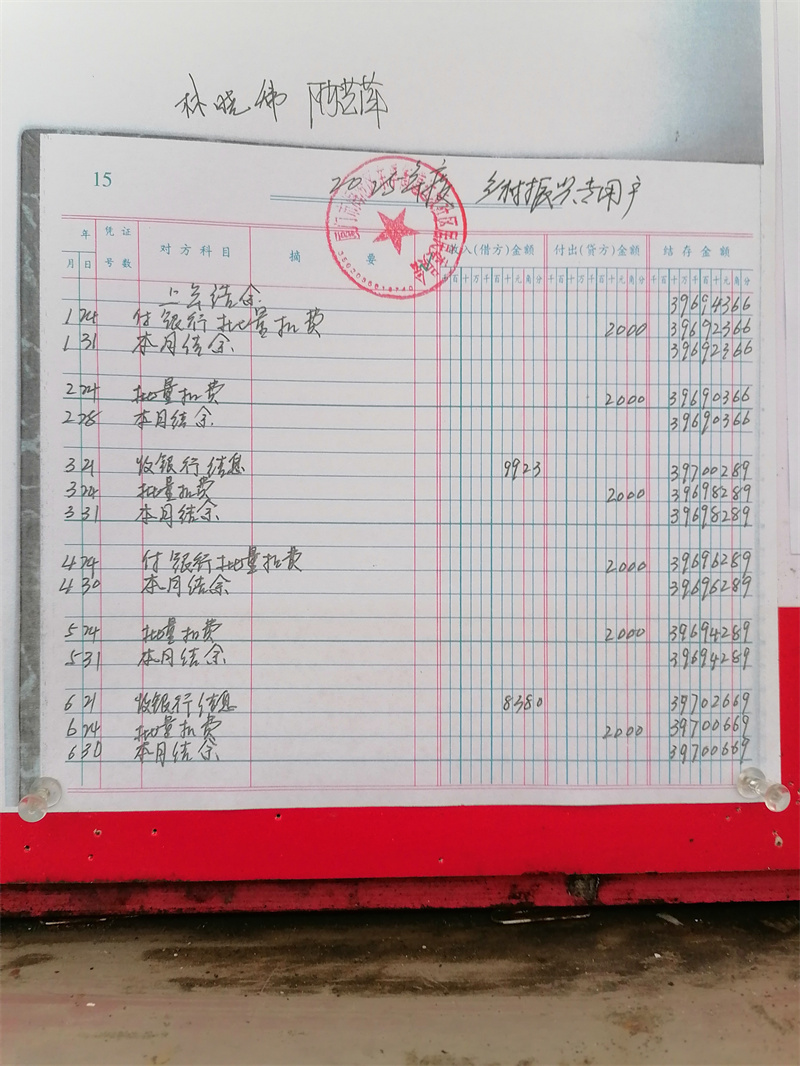 林晓伟
15 2025年度 乡村振兴专用户
年 凭证 对方科目 摘要 收入(借方)金额 付出(贷方)金额 结存金额
月 日 号数 千百十万千百十元角分 千百十万千百十元角分 千百十万千百十元角分
上年结余 39694366
1 24 付银行批量扣费 2000 39692366
1 31 本月结余 39692366
2 24 批量扣费 2000 39690366
2 28 本月结余 39690366
3 21 收银行结息 9923 39700289
3 24 批量扣费 2000 39698289
3 31 本月结余 39698289
4 24 付银行批量扣费 2000 39696289
4 30 本月结余 39696289
5 24 批量扣费 2000 39694289
5 31 本月结余 39694289
6 21 收银行结息 8380 39702669
6 24 批量扣费 2000 39700669
6 30 本月结余 39700669